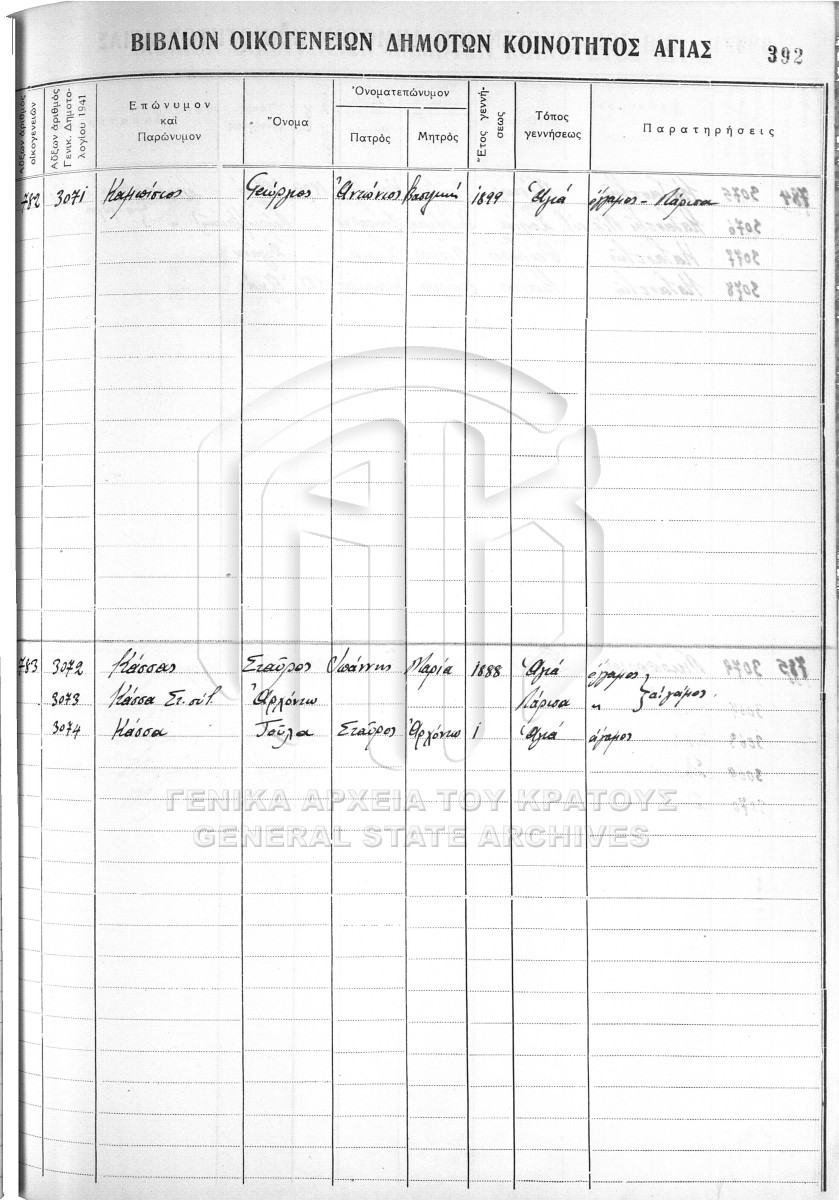 ΒΙΒΛΙΟΝ ΟΙΚΟΓΕΝΕΙΩΝ ΔΗΜΟΤΩΝ ΚΟΙΝΟΤΗΤΟΣ ΑΓΙΑΣ 392
Αὔξων ἀριθμὸς οἰκογενειῶν
Αὔξων ἀριθμὸς Γενικ. Δημοτολογίου 1941
Ἐπώνυμον καὶ Παρώνυμον
Ὄνομα
Ὀνοματεπώνυμον
Πατρὸς
Μητρὸς
Ἔτος γεννήσεως
Τόπος γεννήσεως
Παρατηρήσεις
782 3071 Γεώργιος Ἀντώνιος Βασιλική 1899 Ἁγιά ἔγγαμος - Λάρισα
783 3072 Κάσσας Σταῦρος Ἰωάννης Μαρία 1888 Ἁγιά ἔγγαμος
3073 Κάσσα Στ. σύζ. Ἀρχόντω Λάρισα "
3074 Κάσσα Σταῦρος Ἀρχόντω Ἁγιά ἄγαμος
ΓΕΝΙΚΑ ΑΡΧΕΙΑ ΤΟΥ ΚΡΑΤΟΥΣ
GENERAL STATE ARCHIVES